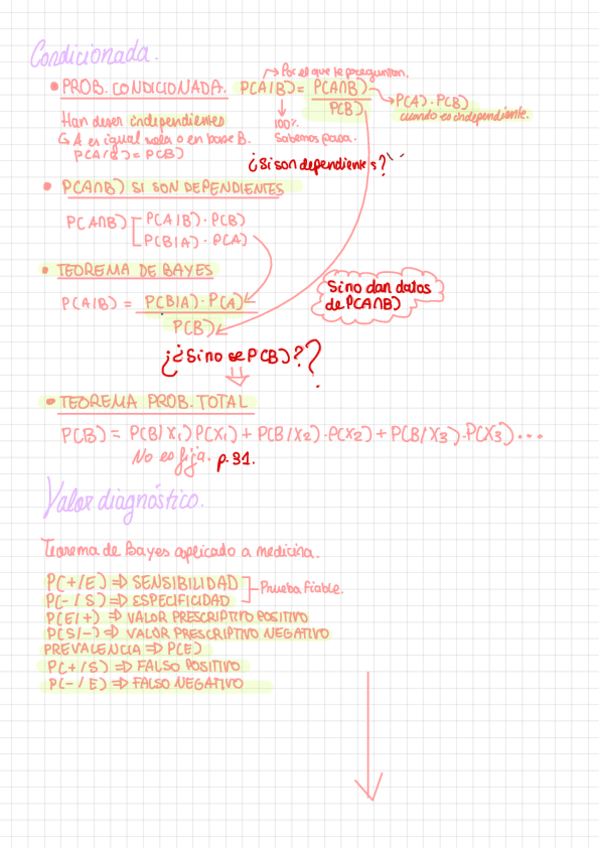 Condicionada.
Por el que te preguntan.
• PROB. CONDICIONADA. P(A/B) = P(A∩B) / P(B) → P(A) · P(B)
cuando es independiente.
Han de ser independientes
↳ A es igual sola o en base B.
P(A/B) = P(B)
100%.
Sabemos pasa.
¿Si son dependientes?
• P(A∩B) SI SON DEPENDIENTES
P(A∩B) P(A/B) · P(B)
P(B/A) · P(A)
• TEOREMA DE BAYES
P(A/B) = P(B/A) · P(A) / P(B)
Si no dan datos
de P(A∩B)
¿¿Si no se P(B)??
• TEOREMA PROB. TOTAL
P(B) = P(B/X₁) P(X₁) + P(B/X₂) · P(X₂) + P(B/X₃) · P(X₃) ...
No es fija. p. 31.
Valor diagnóstico.
Teorema de Bayes aplicado a medicina.
P(+/E) ⇒ SENSIBILIDAD
P(-/S) ⇒ ESPECIFICIDAD
Prueba fiable.
P(E/+) ⇒ VALOR PRESCRIPTIVO POSITIVO
P(S/-) ⇒ VALOR PRESCRIPTIVO NEGATIVO
PREVALENCIA ⇒ P(E)
P(+/S) ⇒ FALSO POSITIVO
P(-/E) ⇒ FALSO NEGATIVO